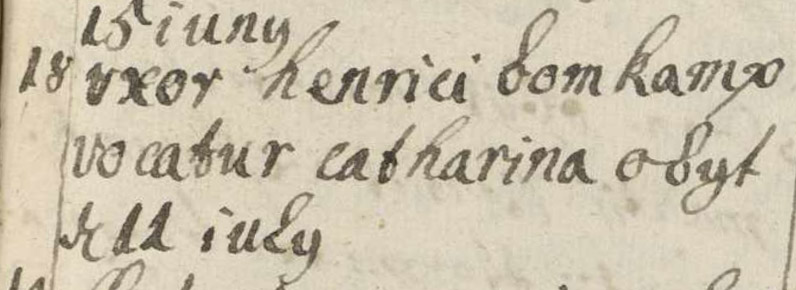 15 iuny
18 vxor henrici bomkamp
vocatur catharina obyt
11 iuly